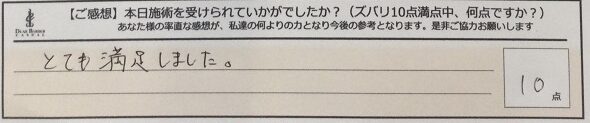 【ご感想】本日施術を受けられていかがでしたか？（ズバリ10点満点中、何点ですか？）
あなた様の率直な感想が、私達の何よりの力となり今後の参考となります。是非ご協力お願いします
とても満足しました。
10点